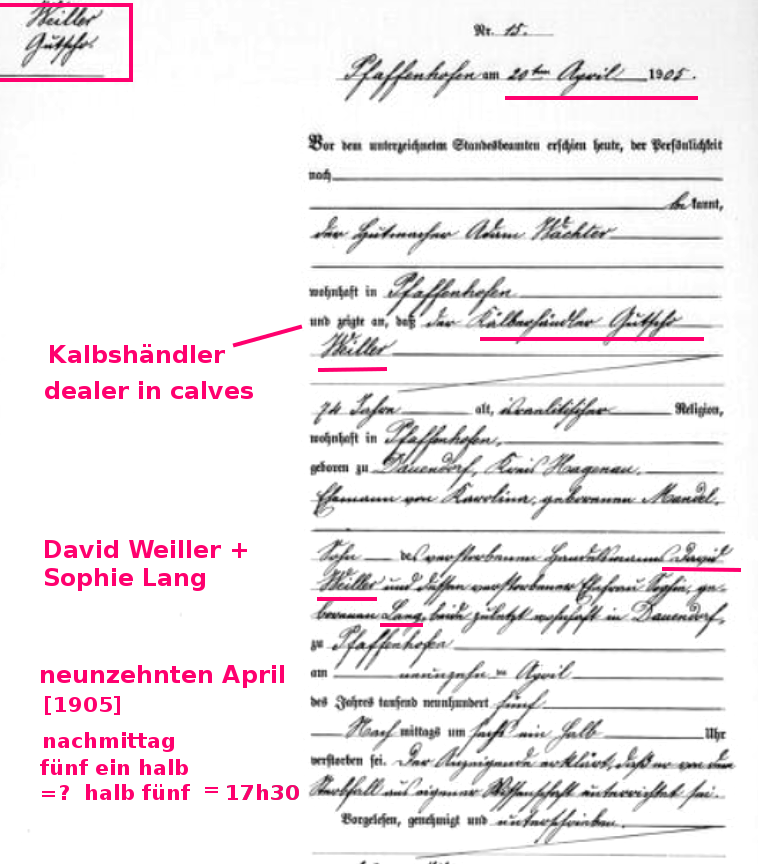 Weiller
Gütscho.
Nr. 15.
Pfaffenhofen am 20ten April 1905.
Vor dem unterzeichneten Standesbeamten erschien heute, der Persönlichkeit
nach
bekannt,
der Hutmacher Adam Wächter
wohnhaft in Pfaffenhofen
und zeigte an, daß der Kälberhändler Gütscho
Weiller
Kalbshändler
dealer in calves
74 Jahre alt, israelitischer Religion,
wohnhaft in Pfaffenhofen,
geboren zu Dauendorf, Kreis Hagenau.
Ehemann von Karolina, geborenen Mandel.
David Weiller +
Sophie Lang
Sohn des verstorbenen Handelsmanns David
Weiller und dessen verstorbener Ehefrau Sophie, ge-
borenen Lang, beide zuletzt wohnhaft in Dauendorf,
zu Pfaffenhofen
neunzehnten April
[1905]
am neunzehnten April
des Jahres tausend neunhundert fünf
nachmittag
fünf ein halb
=? halb fünf = 17h30
Nach mittags um sechs ein halb Uhr
verstorben sei. Der Anzeigende erklärt, daß er von dem
Sterbfall aus eigener Wissenschaft unterrichtet sei.
Vorgelesen, genehmigt und unterschrieben.